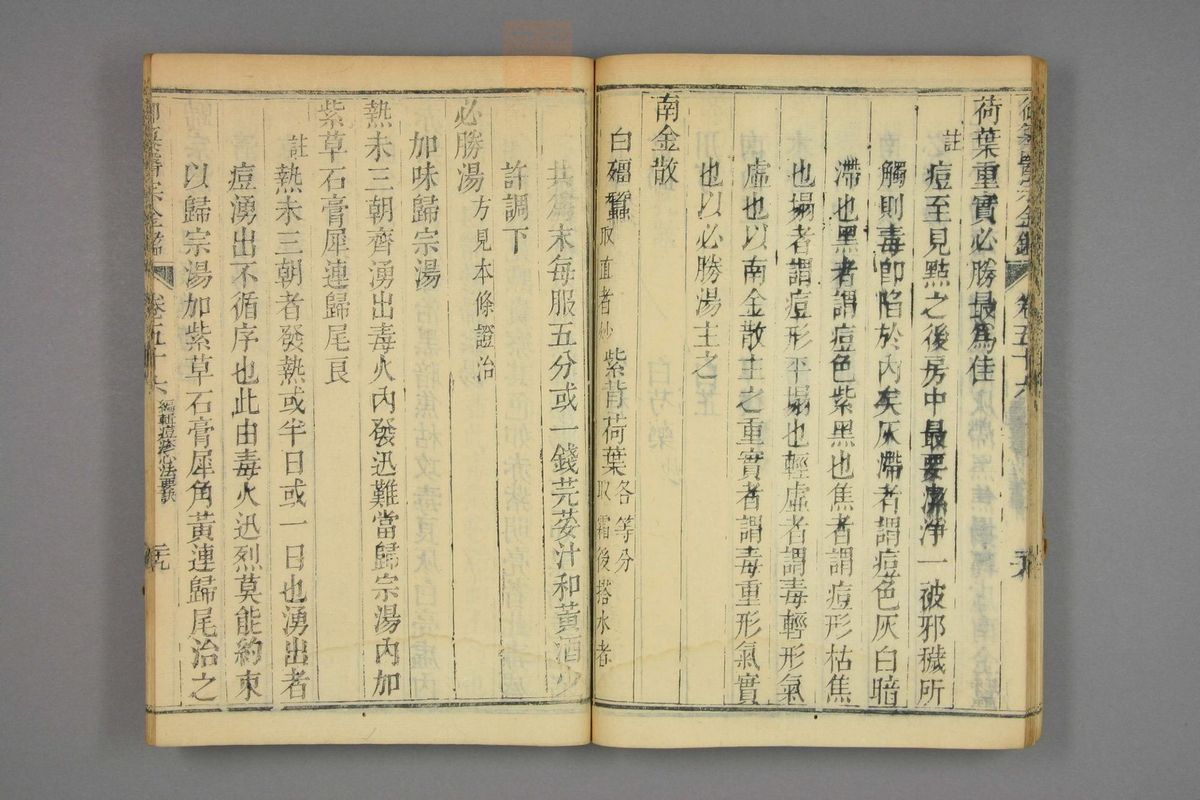 御纂醫宗金鑑 卷五十六
荷葉重實必勝最為佳
註痘至見點之後房中最要潔淨一被邪穢所
觸則毒卽陷於內矣灰滯者謂痘色灰白暗
滯也黑者謂痘色紫黑也焦者謂痘形枯焦
也塌者謂痘形平塌也輕虛者謂毒輕形氣
虛也以南金散主之重實者謂毒重形氣實
也以必勝湯主之
南金散
白殭蠶取直者炒 紫背荷葉取霜後搭水者 各等分
共為末每服五分或一錢芫荽汁和黃酒少
許調下
必勝湯方見本條證治
加味歸宗湯
熱未三朝齊湧出毒火內發迅難當歸宗湯內加
紫草石膏犀連歸尾良
註熱未三朝者發熱或半日或一日也湧出者
痘湧出不循序也此由毒火迅烈莫能約束
以歸宗湯加紫草石膏犀角黃連歸尾治之
御纂醫宗金鑑 卷五十六 編輯痘疹心法要訣 二十九